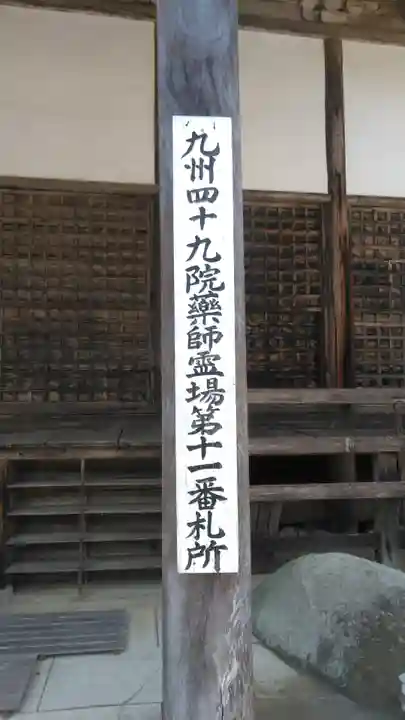 九州四十九院薬師霊場第十一番札所